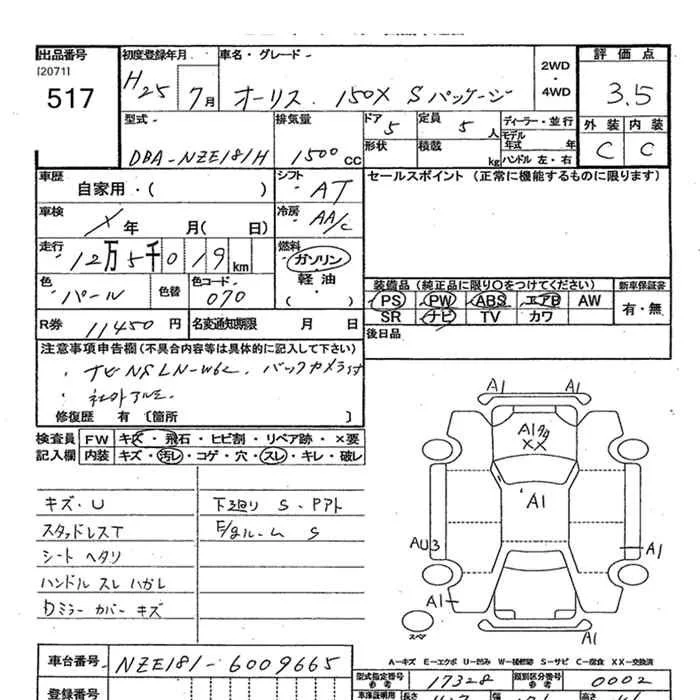 出品番号 初度登録年月 車名・グレード 2WD・4WD 評価点
[2071]
517 H25 7月 オーリス 150X Sパッケージ 3.5
型式 排気量 ドア 5 定員 5人 ディーラー・並行 外装 内装
DBA-NZE181H 1500CC 形状 積載 kg モデル年式 年 C C
ハンドル 左・右
車歴 自家用・( ) シフト AT セールスポイント (正常に機能するものに限ります)
車検 X年 月( 日) 冷房 AA/c
走行 12万5千019km 燃料 ガソリン
軽油
( )
色 パール 色替 色コード 070
装備品 (純正品に限り○をつけてください) 新車保証書
PS PW ABS エアB AW 有・無
SR ナビ TV カワ
R券 11450円 名変通知期限 月 日
後日品
注意事項申告欄 (不具合内容等は具体的に記入して下さい)
・ナビNSLN-W62 バックカメラ付
・社外アルミ
修復歴 有 〔箇所 〕
検査員 FW キズ・飛石・ヒビ割・リペア跡・×要
記入欄 内装 キズ・汚レ・コゲ・穴・スレ・キレ・破レ
キズ・U 下廻り S・Pアト
スタッドレスT E/gルーム S
シート ヘタリ
ハンドル スレ ハガレ
Dミラー カバー キズ
A1 A1
A1
XX
A1
AU3 A1
A1
スペア
A1
A-キズ E-エクボ U-凹み W-補修跡 S-サビ C-腐食 XX-交換済
車台番号 NZE181-6009665
型式指定番号 17328 類別区分番号 0002
の参考 の参考
登録番号 車庫証明用 長さ 幅 高さ